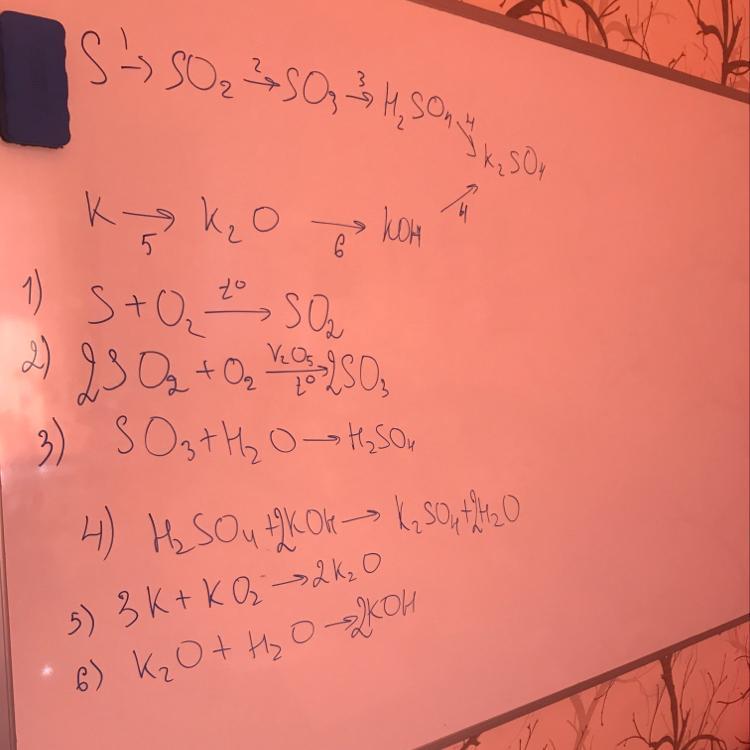 S 1→ SO₂ 2→ SO₃ 3→ H₂SO₄ 4↘ K₂SO₄
K →5 K₂O →6 KOH ↗4
1) S + O₂ t°→ SO₂
2) 2SO₂ + O₂ V₂O₅→t° 2SO₃
3) SO₃ + H₂O → H₂SO₄
4) H₂SO₄ + 2KOH → K₂SO₄ + 2H₂O
5) 3K + KO₂ → 2K₂O
6) K₂O + H₂O → 2KOH